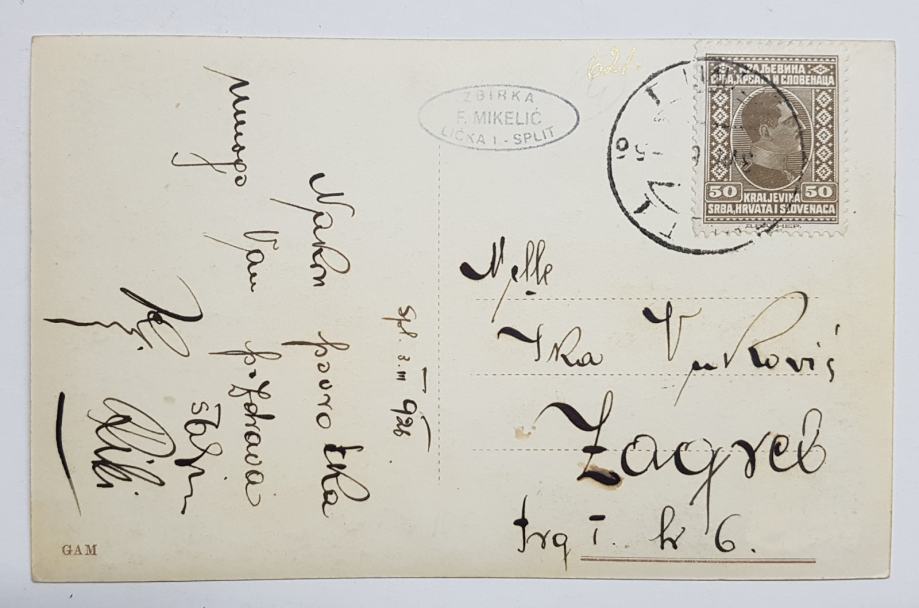 Spl. 3. III 926.
Nakon povratka
mnogo Vam pozdrava
ZBIRKA
F. MIKELIĆ
LIČKA 1 - SPLIT
КРАЉЕВИНА
СРБА, ХРВАТА И СЛОВЕНАЦА
50 50
KRALJEVINA
SRBA, HRVATA I SLOVENACA
Mlle
Ika Vuković
Zagreb
trg I. br 6.
GAM